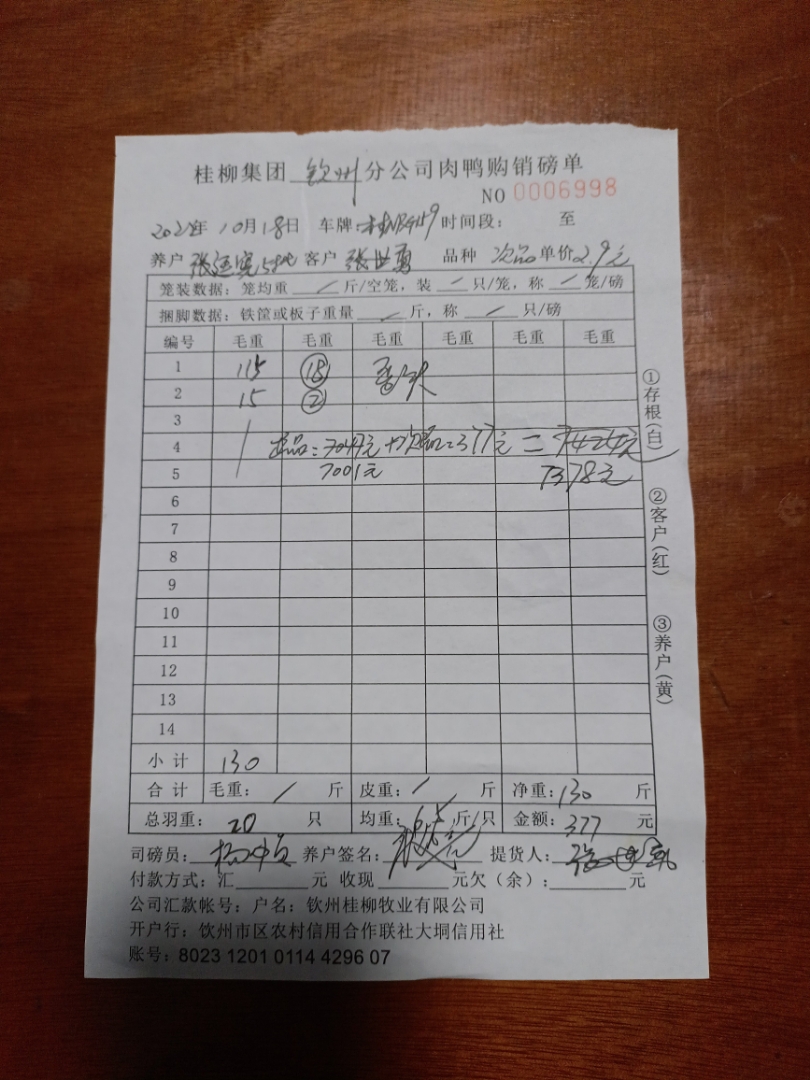 桂柳集团 钦州 分公司肉鸭购销磅单
NO 0006998
年 10月18日 车牌: 时间段: 至
养户 客户 张世勇 品种 次品 单价 2.9元
笼装数据: 笼均重 / 斤/空笼, 装 / 只/笼, 称 / 笼/磅
捆脚数据: 铁筐或板子重量 / 斤, 称 / 只/磅
编号 毛重 毛重 毛重 毛重 毛重 毛重
1 115 ⑱
2 15 ②
3
4 正品=7047元+次品=377元=7424元
5 7001元 7378元
6
7
8
9
10
11
12
13
14
小计 130
合计 毛重: / 斤 皮重: / 斤 净重: 130 斤
总羽重: 20 只 均重: 斤/只 金额: 377 元
司磅员: 养户签名: 提货人:
付款方式: 汇 元 收现 元欠(余): 元
公司汇款帐号: 户名: 钦州桂柳牧业有限公司
开户行: 钦州市区农村信用合作联社大垌信用社
账号: 8023 1201 0114 4296 07
①存根(白)
②客户(红)
③养户(黄)